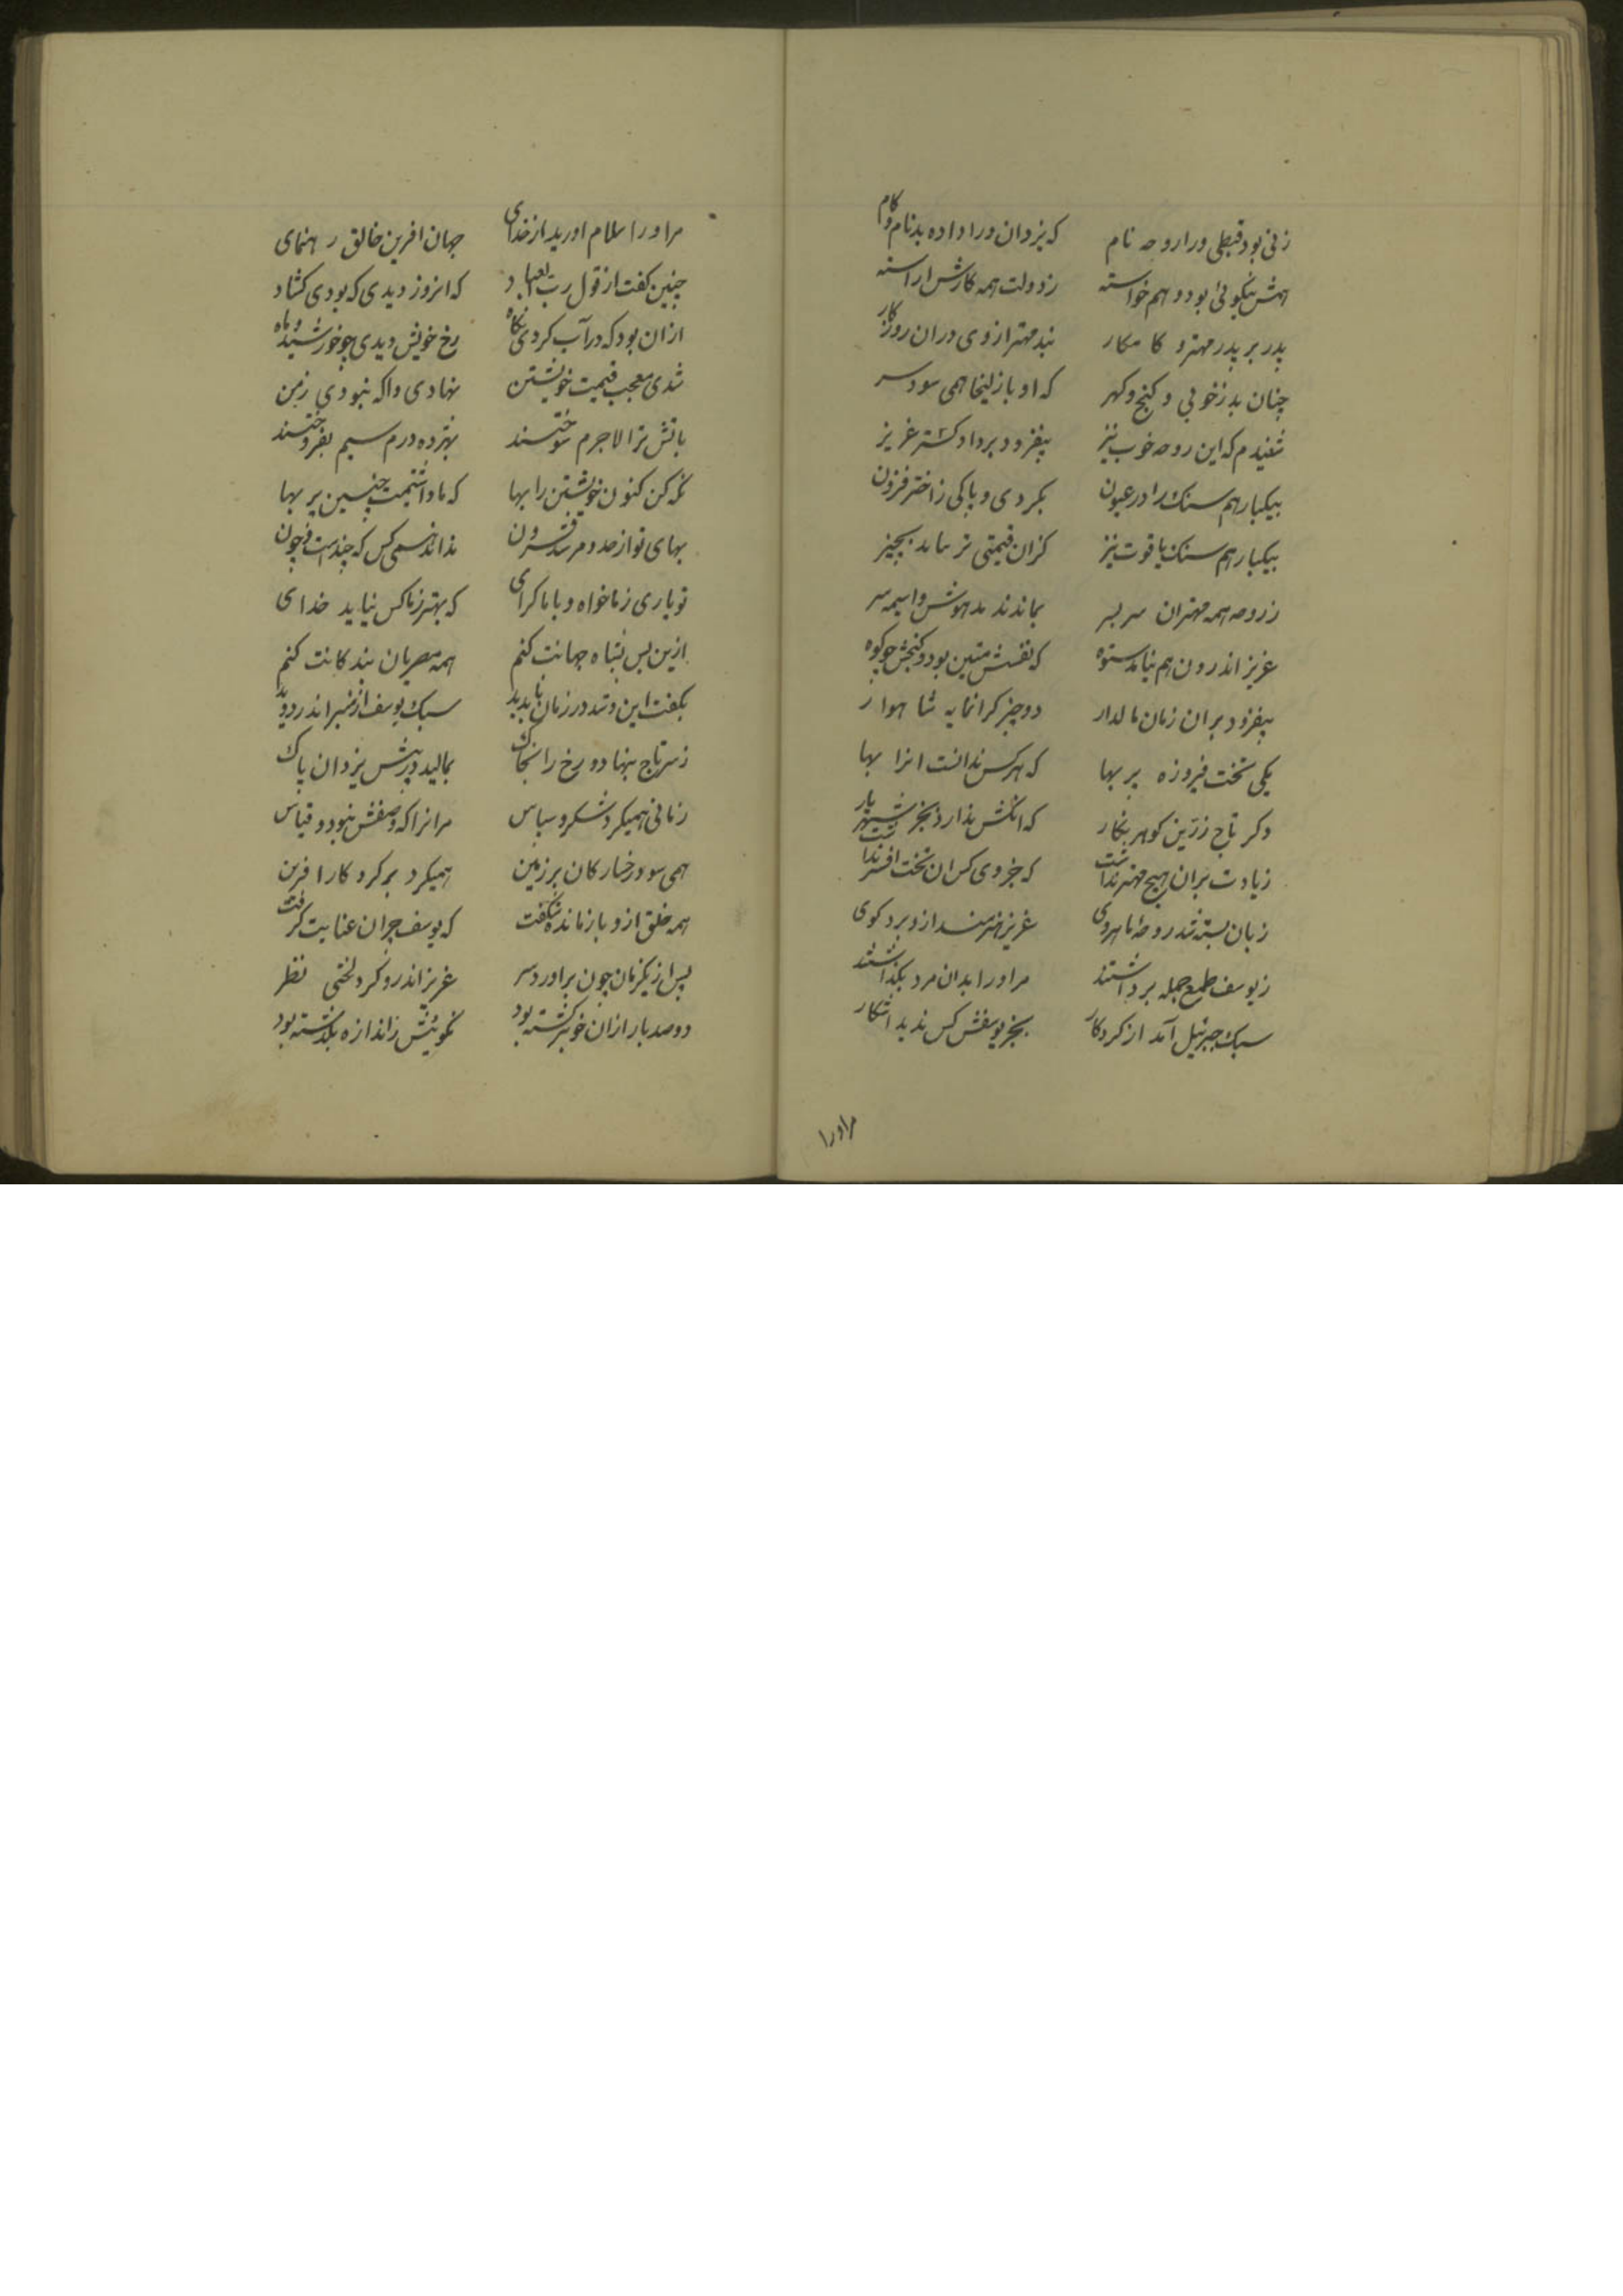 زنی بود قبطی ورا روحه نام که یزدان ورا داده بد نام و کام
همش نیکوئی بود و هم خواسته ز دولت همه کارش اراسته
پدر بر پدر مهتر و کامکار نبد مهتر از وی دران روزکار
چنان بد ز خوبی و کنج و کهر که او با زلیخا همی سود سر
شنیدم که این روحه خوب نیز بیفزود بر داد کشتر عزیز
بیکبار هم سنک را در عیون بکردی و پاکی ز اختر فزون
بیکبار هم سنک یاقوت نیز کزان قیمتی تر نباید بچیز
ز روحه همه مهتران سر بسر بماندند مدهوش و اسیمه سر
عزیز اندرون هم نیامد ستوه که نفسش متین بود و کنجش چو کوه
بیفزود بران زمان مالدار دو چیز کرانمایه شاهوار
یکی تخت فیروزه پر بها که هرکس ندانست انرا بها
دکر تاج زرین کوهر نکار که انکس ندارد بجز شهریار
زیادت بران هیچ مهتر نداشت که جز وی کس ان تخت افسر نداشت
زبان بسته شد روحه ماهروی عزیز هنرمند ازو برد کوی
ز یوسف طمع جمله برداشتند مر او را بدان مرد بکذاشتند
سبک جبرئیل آمد از کردکار بجز یوسفش کس ندید اشکار
مر او را
مر او را سلام اورید از خدای جهان افرین خالق رهنمای
چنین کفت از قول رب العباد که انروز دیدی که بودی کشاد
ازان بود که در آب کردی نکاه رخ خویش دیدی چو خورشید و ماه
شدی معجب قیمت خویشتن نهادی واکه نبودی ز من
باتش ترا لاجرم سوختند بهژده درم سیم بفروختند
نکه کن کنون خویشتن را بها که ما داشتیمت چنین پر بها
بهای تو از حد و مر شد فزون نداند همی کس که چندست و چون
تو یاری ز ما خواه و با ما کرای که بهتر ز ما کس نیاید خدای
ازین پس بشاه جهانت کنم همه مصریان بندکانت کنم
بکفت این و شد در زمان ناپدید سبک یوسف از منبر اندر دوید
ز سر تاج بنهاد و رخ را بخاک بمالید در پیش یزدان پاک
زمانی همیکرد شکر و سپاس مر انرا که وصفش نبود و قیاس
همی سود رخسارکان بر زمین همیکرد بر کردکار افرین
همه خلق ازو باز مانده شکفت که یوسف چرا ان عنایت کرفت
پس از یکزمان چون براورد سر عزیز اندرو کرد لختی نظر
دو صد بار ازان خوبتر کشته بود نکوئیش ز اندازه بکذشته بود